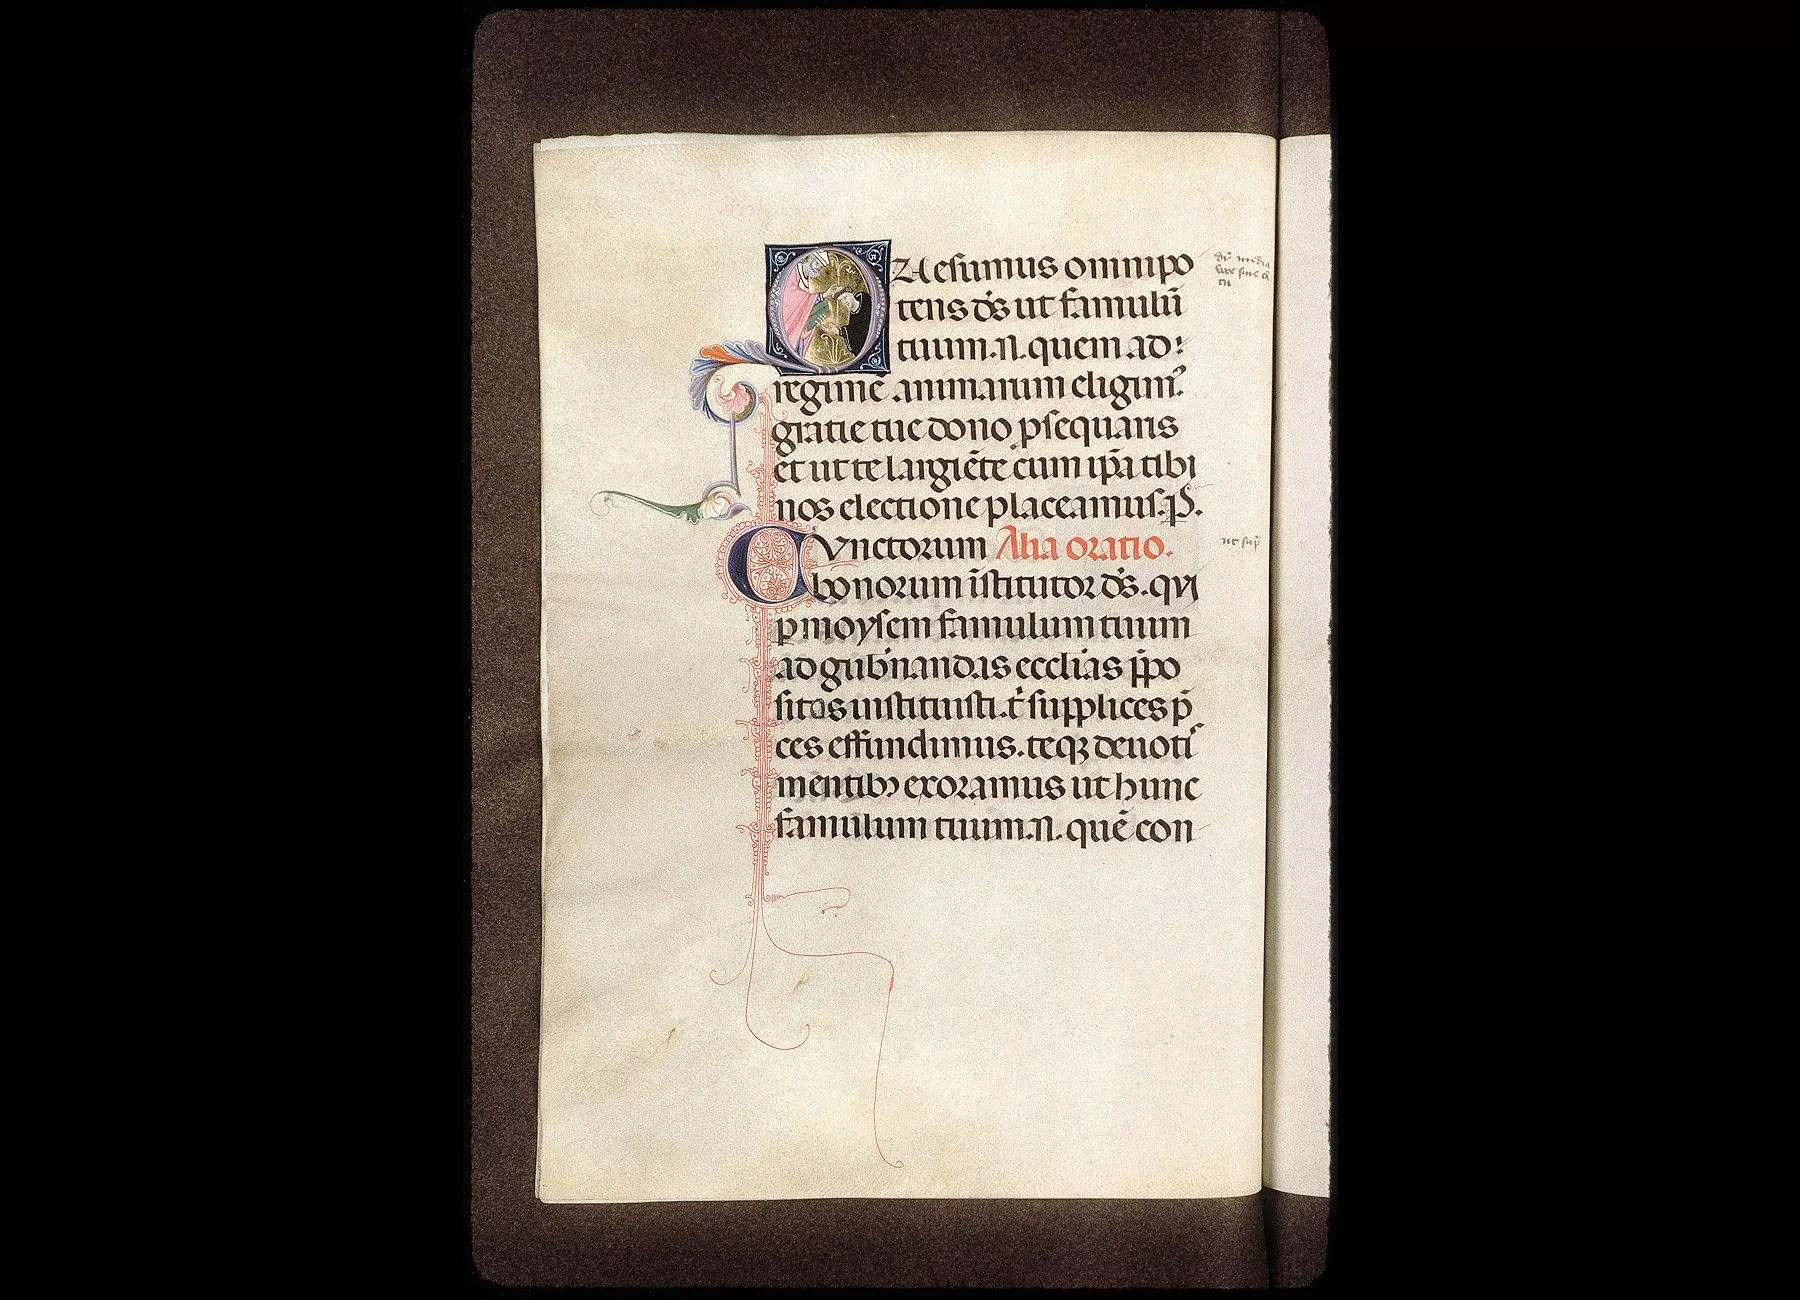 QVAesumus omnipo
tens ds̄ ut famulū
tuum .N. quem ad
regimē animarum eligim᷒.
gratie tue dono ꝑsequaris
et ut te largiēte cum ip̄a tibi
nos electione placeamus. P̱.
CVnctorum Alia oratio.
bonorum īstitutor ds̄. qui
ꝑ moysem famulum tuum
ad gub̄nandas ecclīas p̄po
sitos instituisti. t̄ supplices p̄
ces effundimus. teqꝫ deuotī
mentibꝫ exoramus ut hunc
famulum tuum .N. quē con
dr̄ media
uoce sine cā
tu
ut sup̄